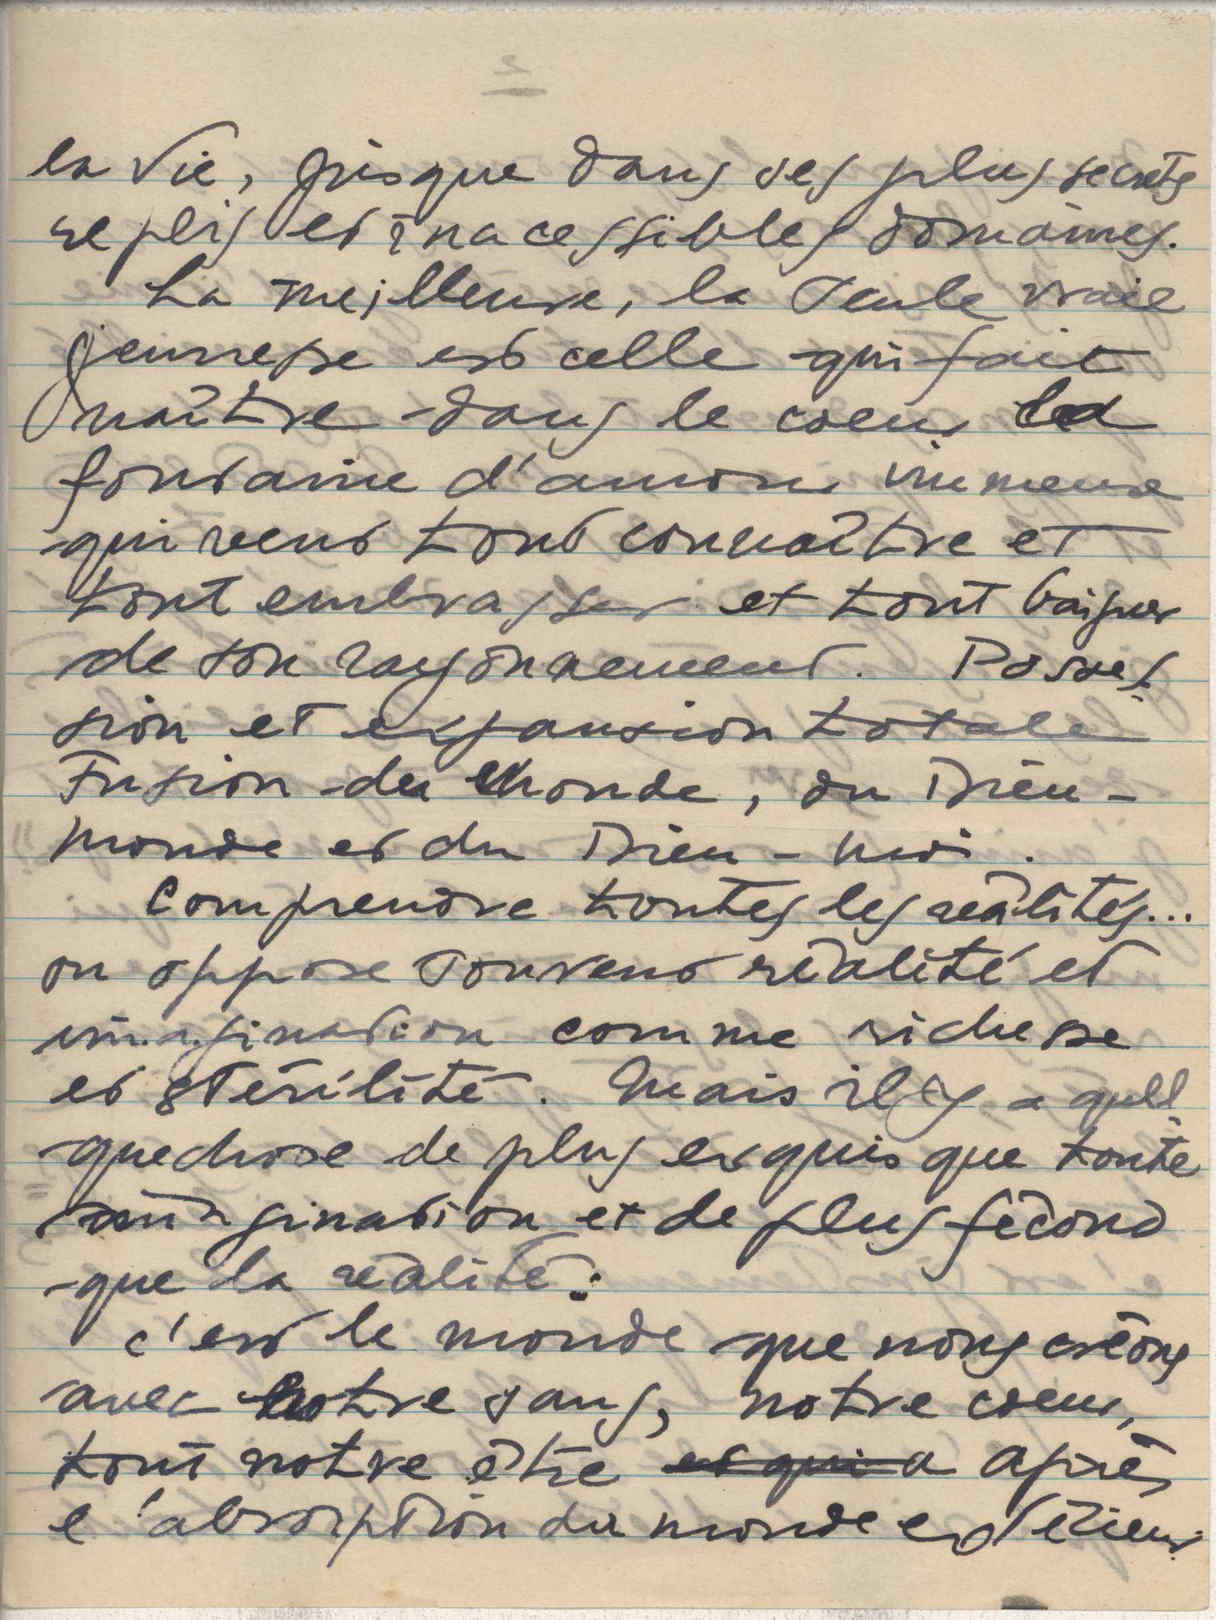 la Vie, jusque dans ses plus secrets
replis et inacessibles domaines.
La meilleure, la seule vraie
jeunesse est celle qui fait
naître dans le coeur la
fontaine d'amour immense
qui veut tout connaître et
tout embrasser et tout baigner
de son rayonnement. Posses
sion et expansion totale
Fusion du monde, du Dieu -
monde et du Dieu - moi.
Comprendre toutes les réalités...
on oppose souvent réalité et
imagination comme richesse
et stérilité. Mais il y a quel
quechose de plus exquis que toute
imagination et de plus fécond
que la réalité :
c'est le monde que nous créons
avec notre sang, notre coeur,
tout notre être et qui a après
l'absorption du monde extérieur